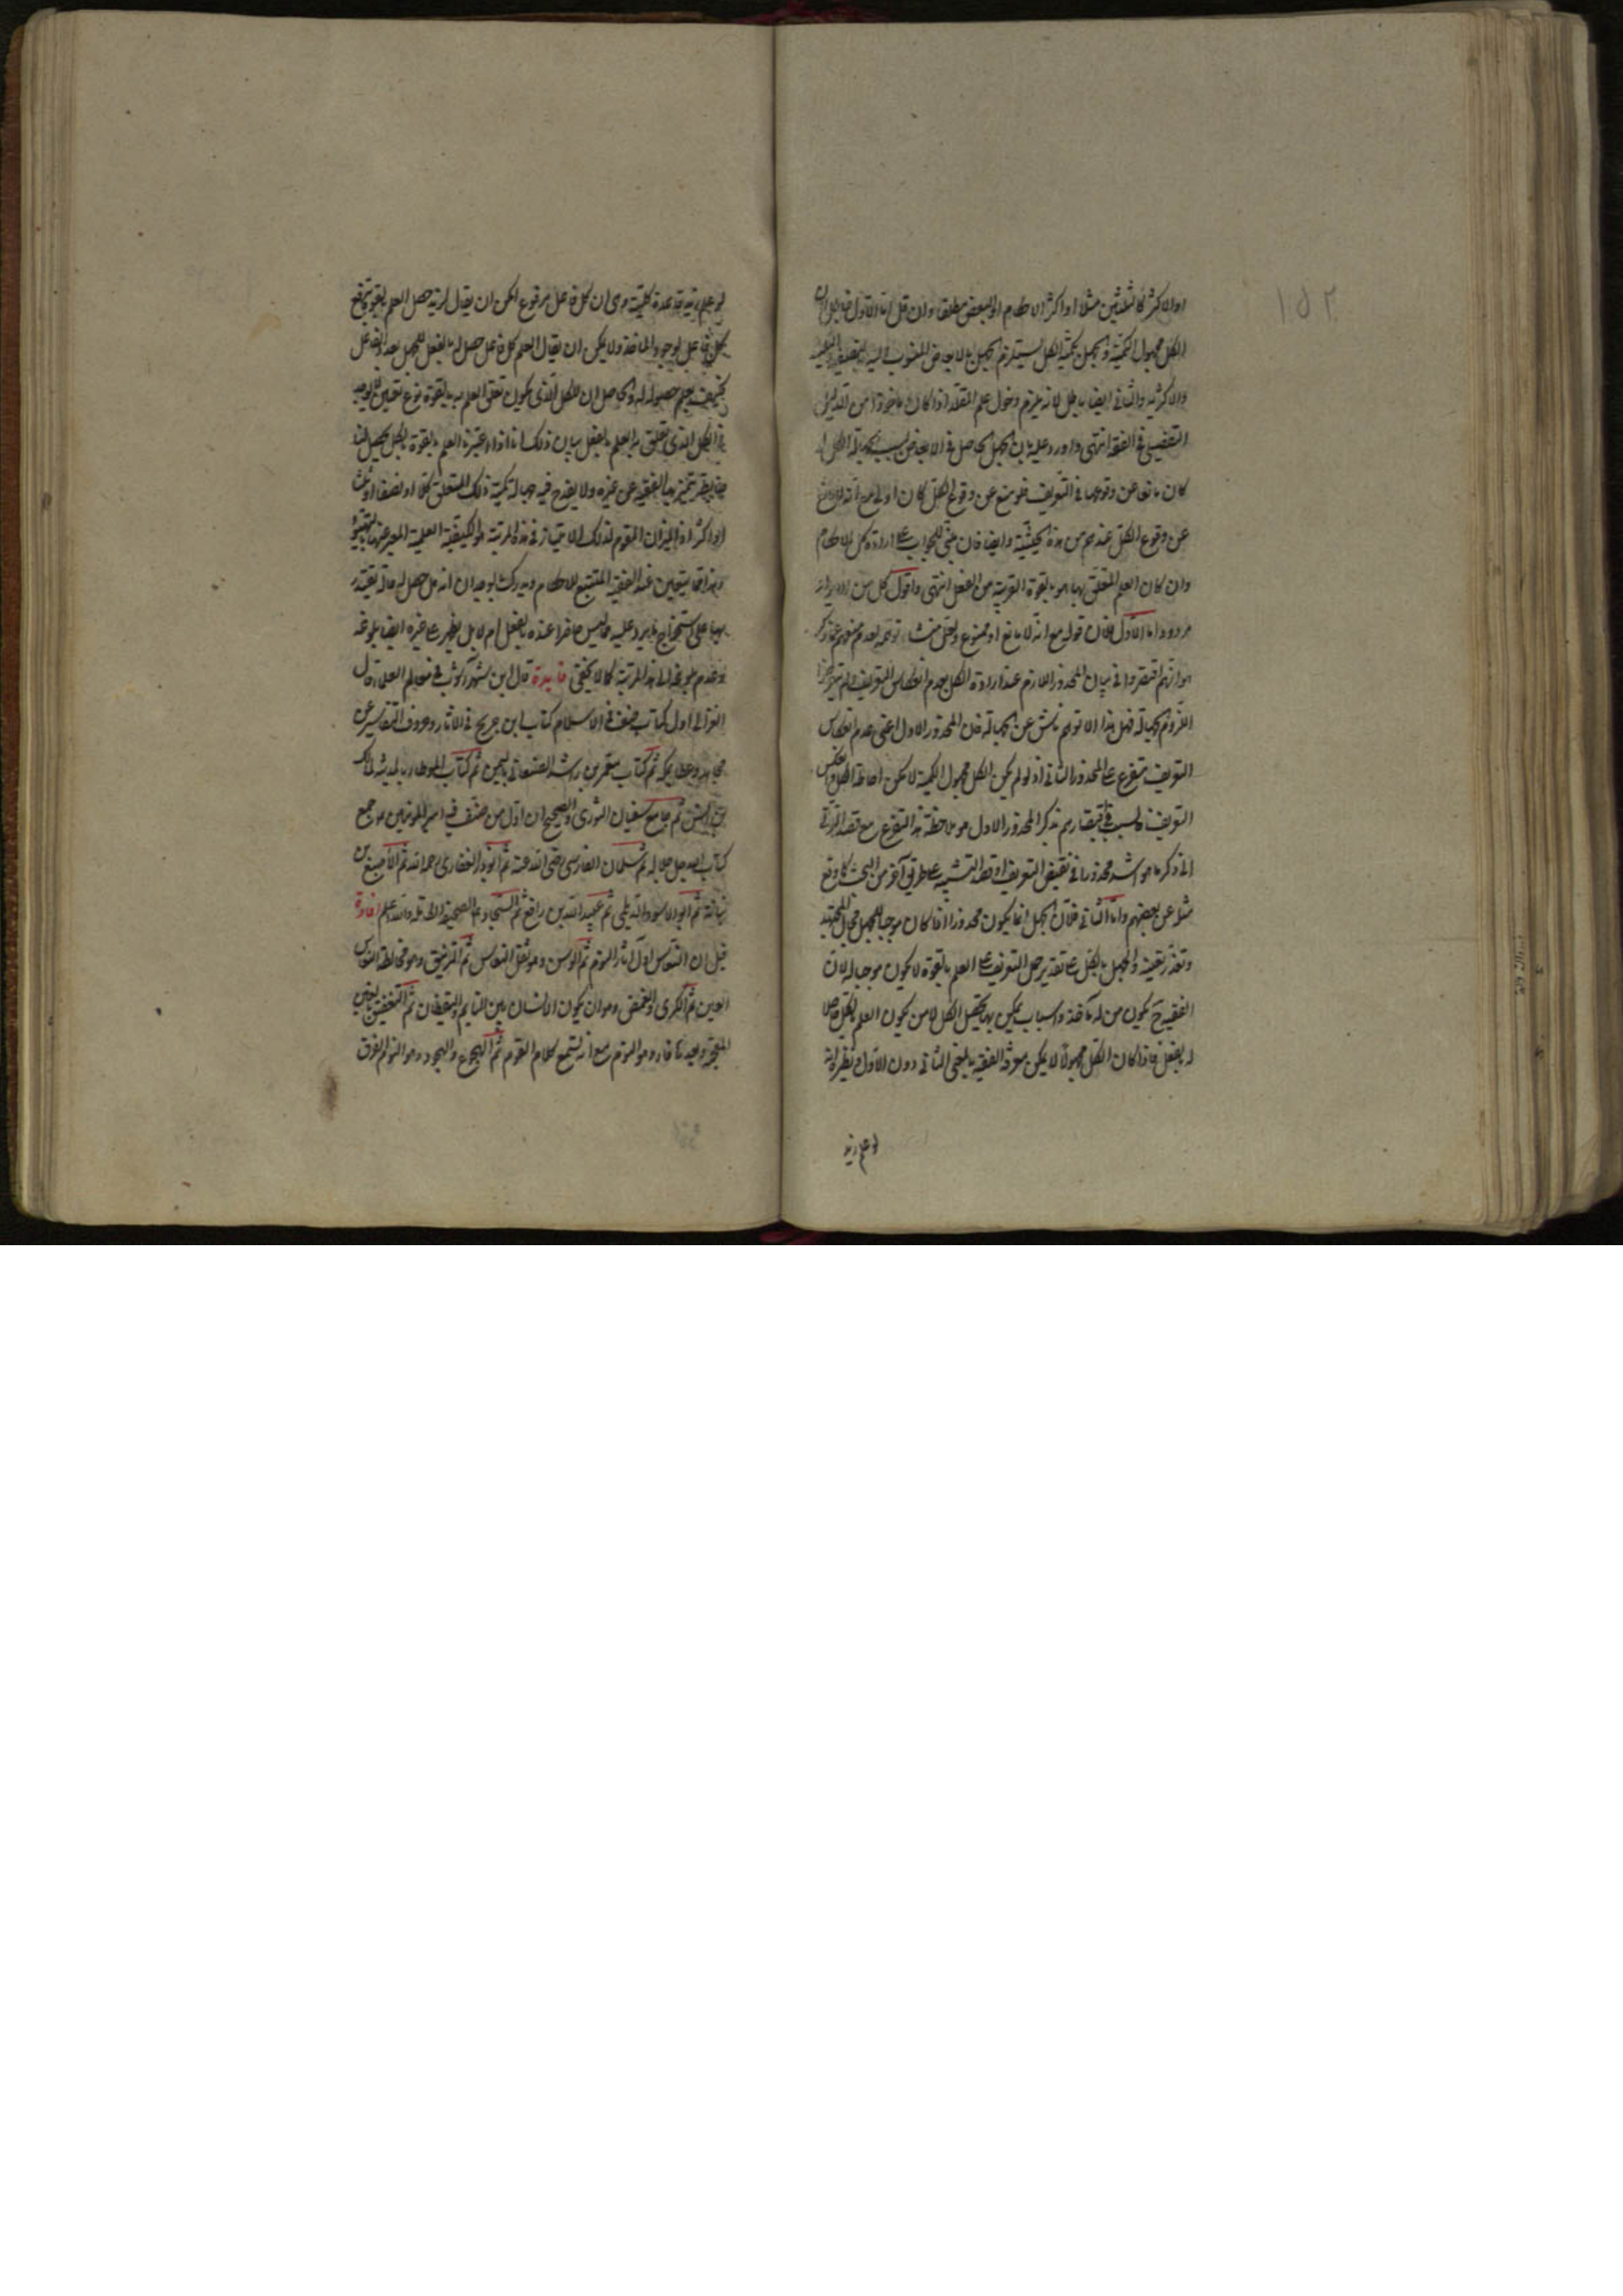 او الاكثر كالثلثين مثلا او اكثر الاحكام او البعض مطلقا وان قل اما الاول فلان
الكل مجهول الكمية والجهل بكمية الكل يستلزم الجهل بالابعاض المنسوب اليه كالنصف
والاكثرية والثاني ايضا باطل لانه يلزم دخول علم المقلد اذا كان ماخوذا من الدليل
التفصيلي في الفقه انتهى واورد عليه بان الجهل الحاصل في الابعاض بسبب جهالة الكل ان
كان مانعا عن وقوعها في التعريف فلم منع عن وقوع الكل كان اولى مع انه لا مانع
عن وقوع الكل عندهم من هذه الحيثية وايضا فان مبنى الجواب على ارادة كل الاحكام
وان كان العلم المتعلق بها هو بالقوة القريبة من الفعل انتهى واقول كل من الايرادين
مردود اما الاول فلان قوله مع انه لا مانع اه ممنوع
هو انهم اقتصروا في بيان المحذور اللازم عند ارادة الكل بعدم انعكاس التعريف ولم يتعرضوا
للزوم الجهالة فهل هذا الا توهم ناش عن الجهالة فان المحذور الاول اعني عدم انعكاس
التعريف متفرع على المحذور الثاني اذ لو لم يكن الكل مجهول الكمية لامكن احاطة الكل وانعكس
التعريف فالسبب في اقتصارهم بذكر المحذور الاول هو ملاحظة هذا التفرع مع قصد الترقي
الى ذكر ما هو اشد محذورا في نقيض التعريف او قصد التنبيه على طريق آخر من البحث كما وقع
مثلا عن بعضهم واما الثاني فلان الجهل انما يكون محذورا اذا كان موجبا للجهل بحال المجتهد
وتعذر تعينه والجهل بالكل على تقدير حمل التعريف على العلم بالقوة لا يكون موجبا له لان
الفقيه ح يكون من له مآخذ واسباب يمكن بها تحصيل الكل لا من يكون العلم بالكل حاصلا
له بالفعل فاذا كان الكل مجهولا لا يمكن معرفة الفقيه بالمعنى الثاني دون الاول نظيره انه
لو علم زيد
لو علم زيد قاعدة كلية وهي ان كل فاعل مرفوع امكن ان يقال انه حصل العلم بالقوة برفع
كل فاعل لوجود الماخذ ولا يمكن ان يقال العلم بكل فاعل حصل له بالفعل للجهل بعدد الفاعل
فكيف يعلم حصوله له والحاصل ان الكل الذي يكون تعلق العلم به بالقوة نوع تعين لا يوجد
في الكل الذي يتعلق به العلم بالفعل بيان ذلك انا اذا اعتبرنا العلم بالقوة بالكل يحصل لنا
ضابطة يتميز بها الفقيه عن غيره ولا يقدح فيه جهالة كمية ذلك المتعلق كلا او نصفا او ثلث
او اكثر اذ الميزان المقوم لذلك الامتياز في هذه المرتبة هو الكيفية العلمية المعبر عنها بالتهيؤ
وهذا مما يتعين عند الفقيه المتتبع للاحكام ويدرك بالوجدان انه هل حصل له حالة يقتدر
بها على استخراج ما يرد عليه مما ليس حاضرا عنده بالفعل ام لا بل يظهر على غيره ايضا بلوغه
وعدم بلوغه الى هذه المرتبة كما لا يخفى فايدة قال ابن شهرآشوب في معالم العلماء قال
الغزالي اول كتاب صنف في الاسلام كتاب ابن جريج في الآثار وحروف التفاسير عن
مجاهد وعطا بمكة ثم كتاب معمر بن راشد الصنعاني باليمن ثم كتاب الموطا بالمدينة لمالك
بن انس ثم جامع سفيان الثوري والصحيح ان اول من صنف فيه امير المؤمنين ع جمع
كتاب الله جل جلاله ثم سلمان الفارسي رضي الله عنه ثم ابوذر الغفاري رحمه الله ثم الاصبغ بن
نباتة ثم ابو الاسود الدئلي ثم عبيد الله بن رافع ثم السجاد ع الصحيفة الكاملة والله اعلم افادة
قيل ان النعاس اول آثار النوم ثم الوسن وهو ثقل النعاس ثم الترنيق وهو مخالطة النعاس
العين ثم الكرى والغمض وهو ان يكون الانسان بين النايم واليقظان ثم التغفيق بالغين
المعجمة وبعدها فاء وهو النوم مع انه تسمع كلام القوم ثم الهجوع والهجود وهو النوم الغرق